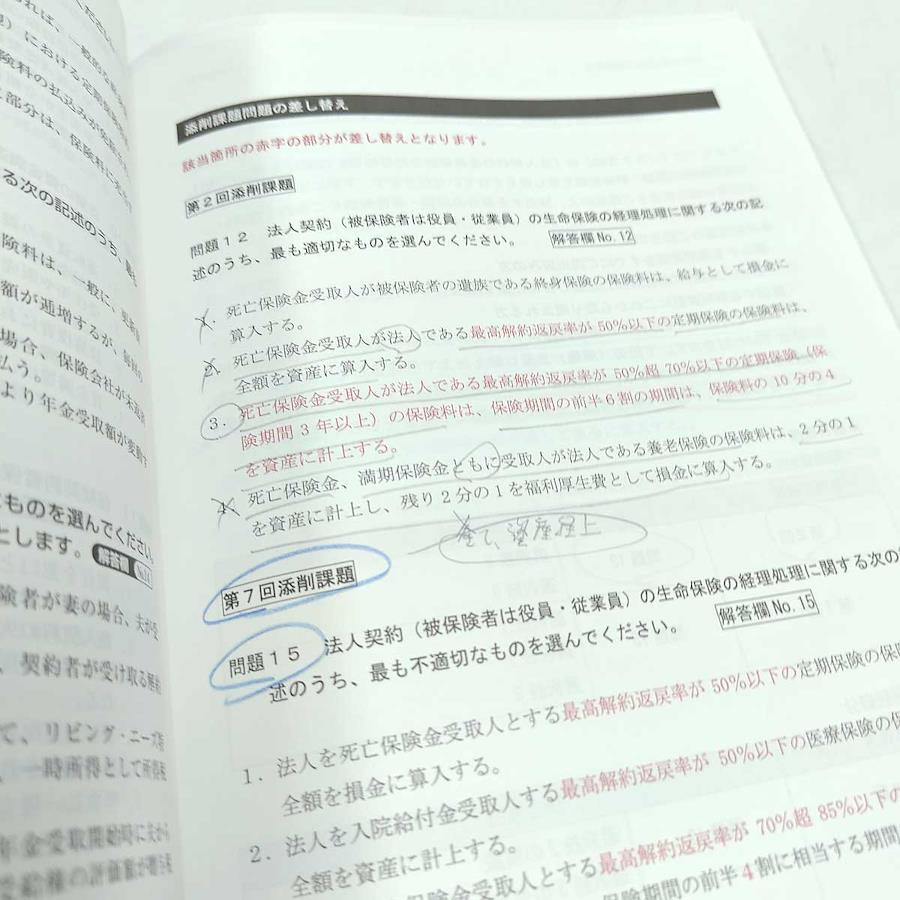 添削課題問題の差し替え
該当箇所の赤字の部分が差し替えとなります。
第2回添削課題
問題12 法人契約（被保険者は役員・従業員）の生命保険の経理処理に関する次の記
述のうち、最も適切なものを選んでください。 解答欄No.12
1. 死亡保険金受取人が被保険者の遺族である終身保険の保険料は、給与として損金に
算入する。
2. 死亡保険金受取人が法人である最高解約返戻率が50%以下の定期保険の保険料は、
全額を資産に算入する。
3. 死亡保険金受取人が法人である最高解約返戻率が50%超70%以下の定期保険（保
険期間3年以上）の保険料は、保険期間の前半6割の期間は、保険料の10分の4
を資産に計上する。
4. 死亡保険金、満期保険金ともに受取人が法人である養老保険の保険料は、2分の1
を資産に計上し、残り2分の1を福利厚生費として損金に算入する。
全て資産計上
第7回添削課題
問題15 法人契約（被保険者は役員・従業員）の生命保険の経理処理に関する次の
述のうち、最も不適切なものを選んでください。 解答欄No.15
1. 法人を死亡保険金受取人とする最高解約返戻率が50%以下の定期保険の保険
全額を損金に算入する。
2. 法人を入院給付金受取人する最高解約返戻率が50%以下の医療保険の保
全額を資産に計上する。
保険金受取人とする最高解約返戻率が70%超85%以下の
保険期間の前半4割に相当する期間
る次の記述のうち、最も
険料は、一般に、更新前
額が逓増するが、
場合、保険会社が
払う。
より年金受取額が変動
ものを選んでください。
とします。 解答欄
険者が妻の場合、夫が受
、契約者が受け取る解約
て、リビング・ニーズ特
、一時所得として所得税
年金受取開始時に夫から
受給権の評価額が贈与税